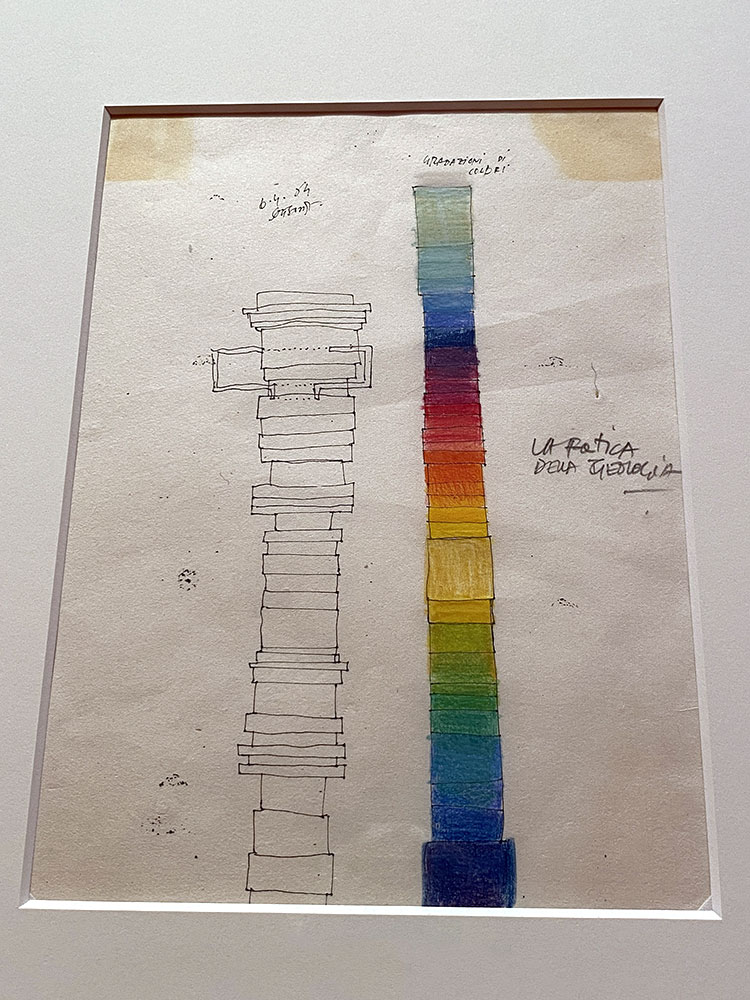 GRADAZIONI DI
COLORI
LA FATICA
DELLA GEOLOGIA